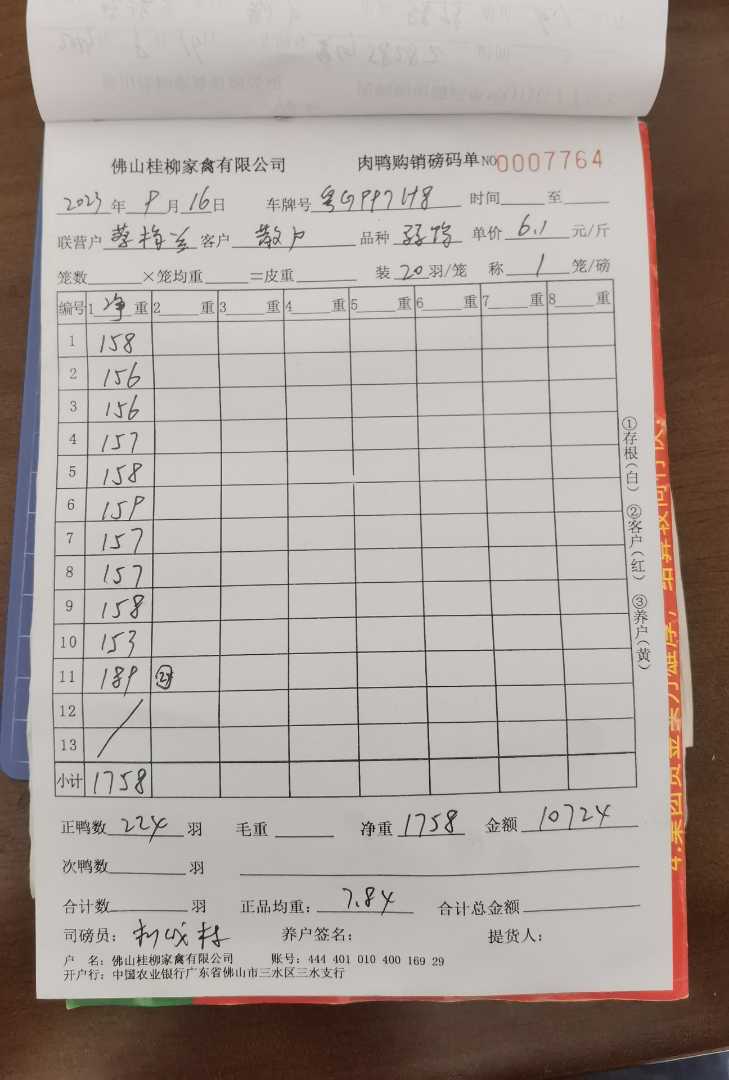 佛山桂柳家禽有限公司 肉鸭购销磅码单 NO0007764
2023年9月16日 车牌号 粤GPP7H8 时间 至
联营户 蔡梅兰 客户 散户 品种 单价 6.1 元/斤
笼数 ×笼均重 =皮重 装 20 羽/笼 称 1 笼/磅
编号 1 净 重 2 重 3 重 4 重 5 重 6 重 7 重 8 重
1 158
2 156
3 156
4 157
5 158
6 159
7 157
8 157
9 158
10 153
11 189 24
12
13
小计 1758
正鸭数 224 羽 毛重 净重 1758 金额 10724
次鸭数 羽
合计数 羽 正品均重: 7.84 合计总金额
司磅员: 养户签名: 提货人:
户 名: 佛山桂柳家禽有限公司 账号: 444 401 010 400 169 29
开户行: 中国农业银行广东省佛山市三水区三水支行
①存根(白) ②客户(红) ③养户(黄)